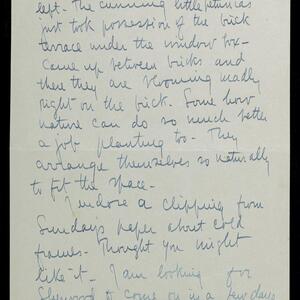 left - The cunning little petunias
just took possession of the brick
terrace under the window box -
Came up between bricks and
there they are blooming madly
right on the brick. Some how
nature can do so much better
a job planting too - They
arrange themselves so naturally
to fit the space -
I endore a clipping from
Sunday's paper about cold
frames - Thought you might
like it - I am looking for
to come on in a few days